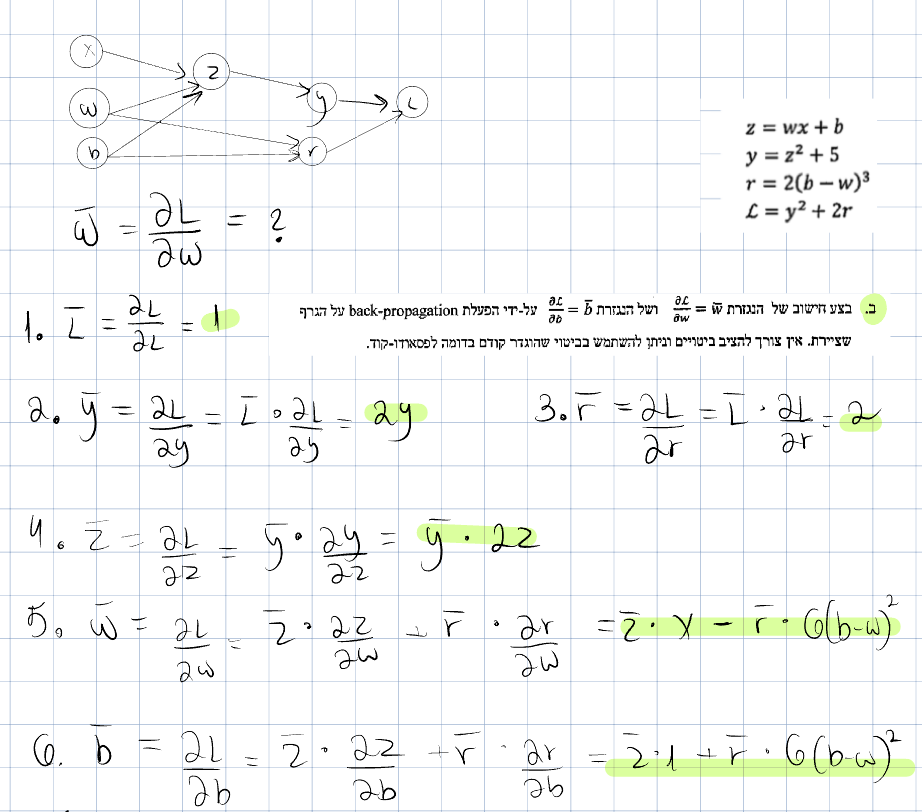 x
z
w
y
L
b
r
z = wx + b
y = z² + 5
r = 2(b − w)³
ℒ = y² + 2r
w̄ = ∂L/∂w = ?
ב. בצע חישוב של הנגזרת w̄ = ∂ℒ/∂w ושל הנגזרת b̄ = ∂ℒ/∂b על-ידי הפעלת back-propagation על הגרף
שציירת. אין צורך להציב ביטויים וניתן להשתמש בביטוי שהוגדר קודם בדומה לפסאודו-קוד.
1. L̄ = ∂L/∂L = 1
2. ȳ = ∂L/∂y = L̄ · ∂L/∂y = 2y
3. r̄ = ∂L/∂r = L̄ · ∂L/∂r = 2
4. z̄ = ∂L/∂z = ȳ · ∂y/∂z = ȳ · 2z
5. w̄ = ∂L/∂w = z̄ · ∂z/∂w + r̄ · ∂r/∂w = z̄ · x − r̄ · 6(b-w)²
6. b̄ = ∂L/∂b = z̄ · ∂z/∂b + r̄ · ∂r/∂b = z̄ · 1 + r̄ · 6(b-w)²